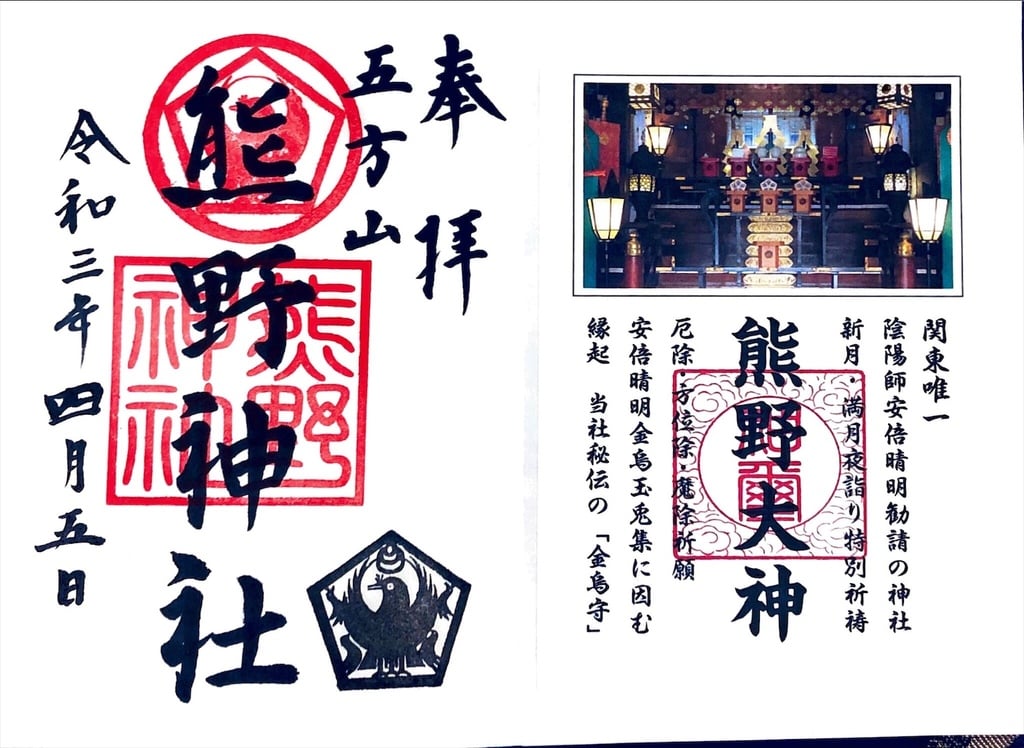 関東唯一
陰陽師安倍晴明勧請の神社
新月・満月夜詣り特別祈祷
熊野大神
厄除・方位除・魔除祈願
安倍晴明金烏玉兎集に因む
縁起 当社秘伝の「金烏守」
奉拝
五方山
熊野神社
熊野
神社
令和三年四月五日